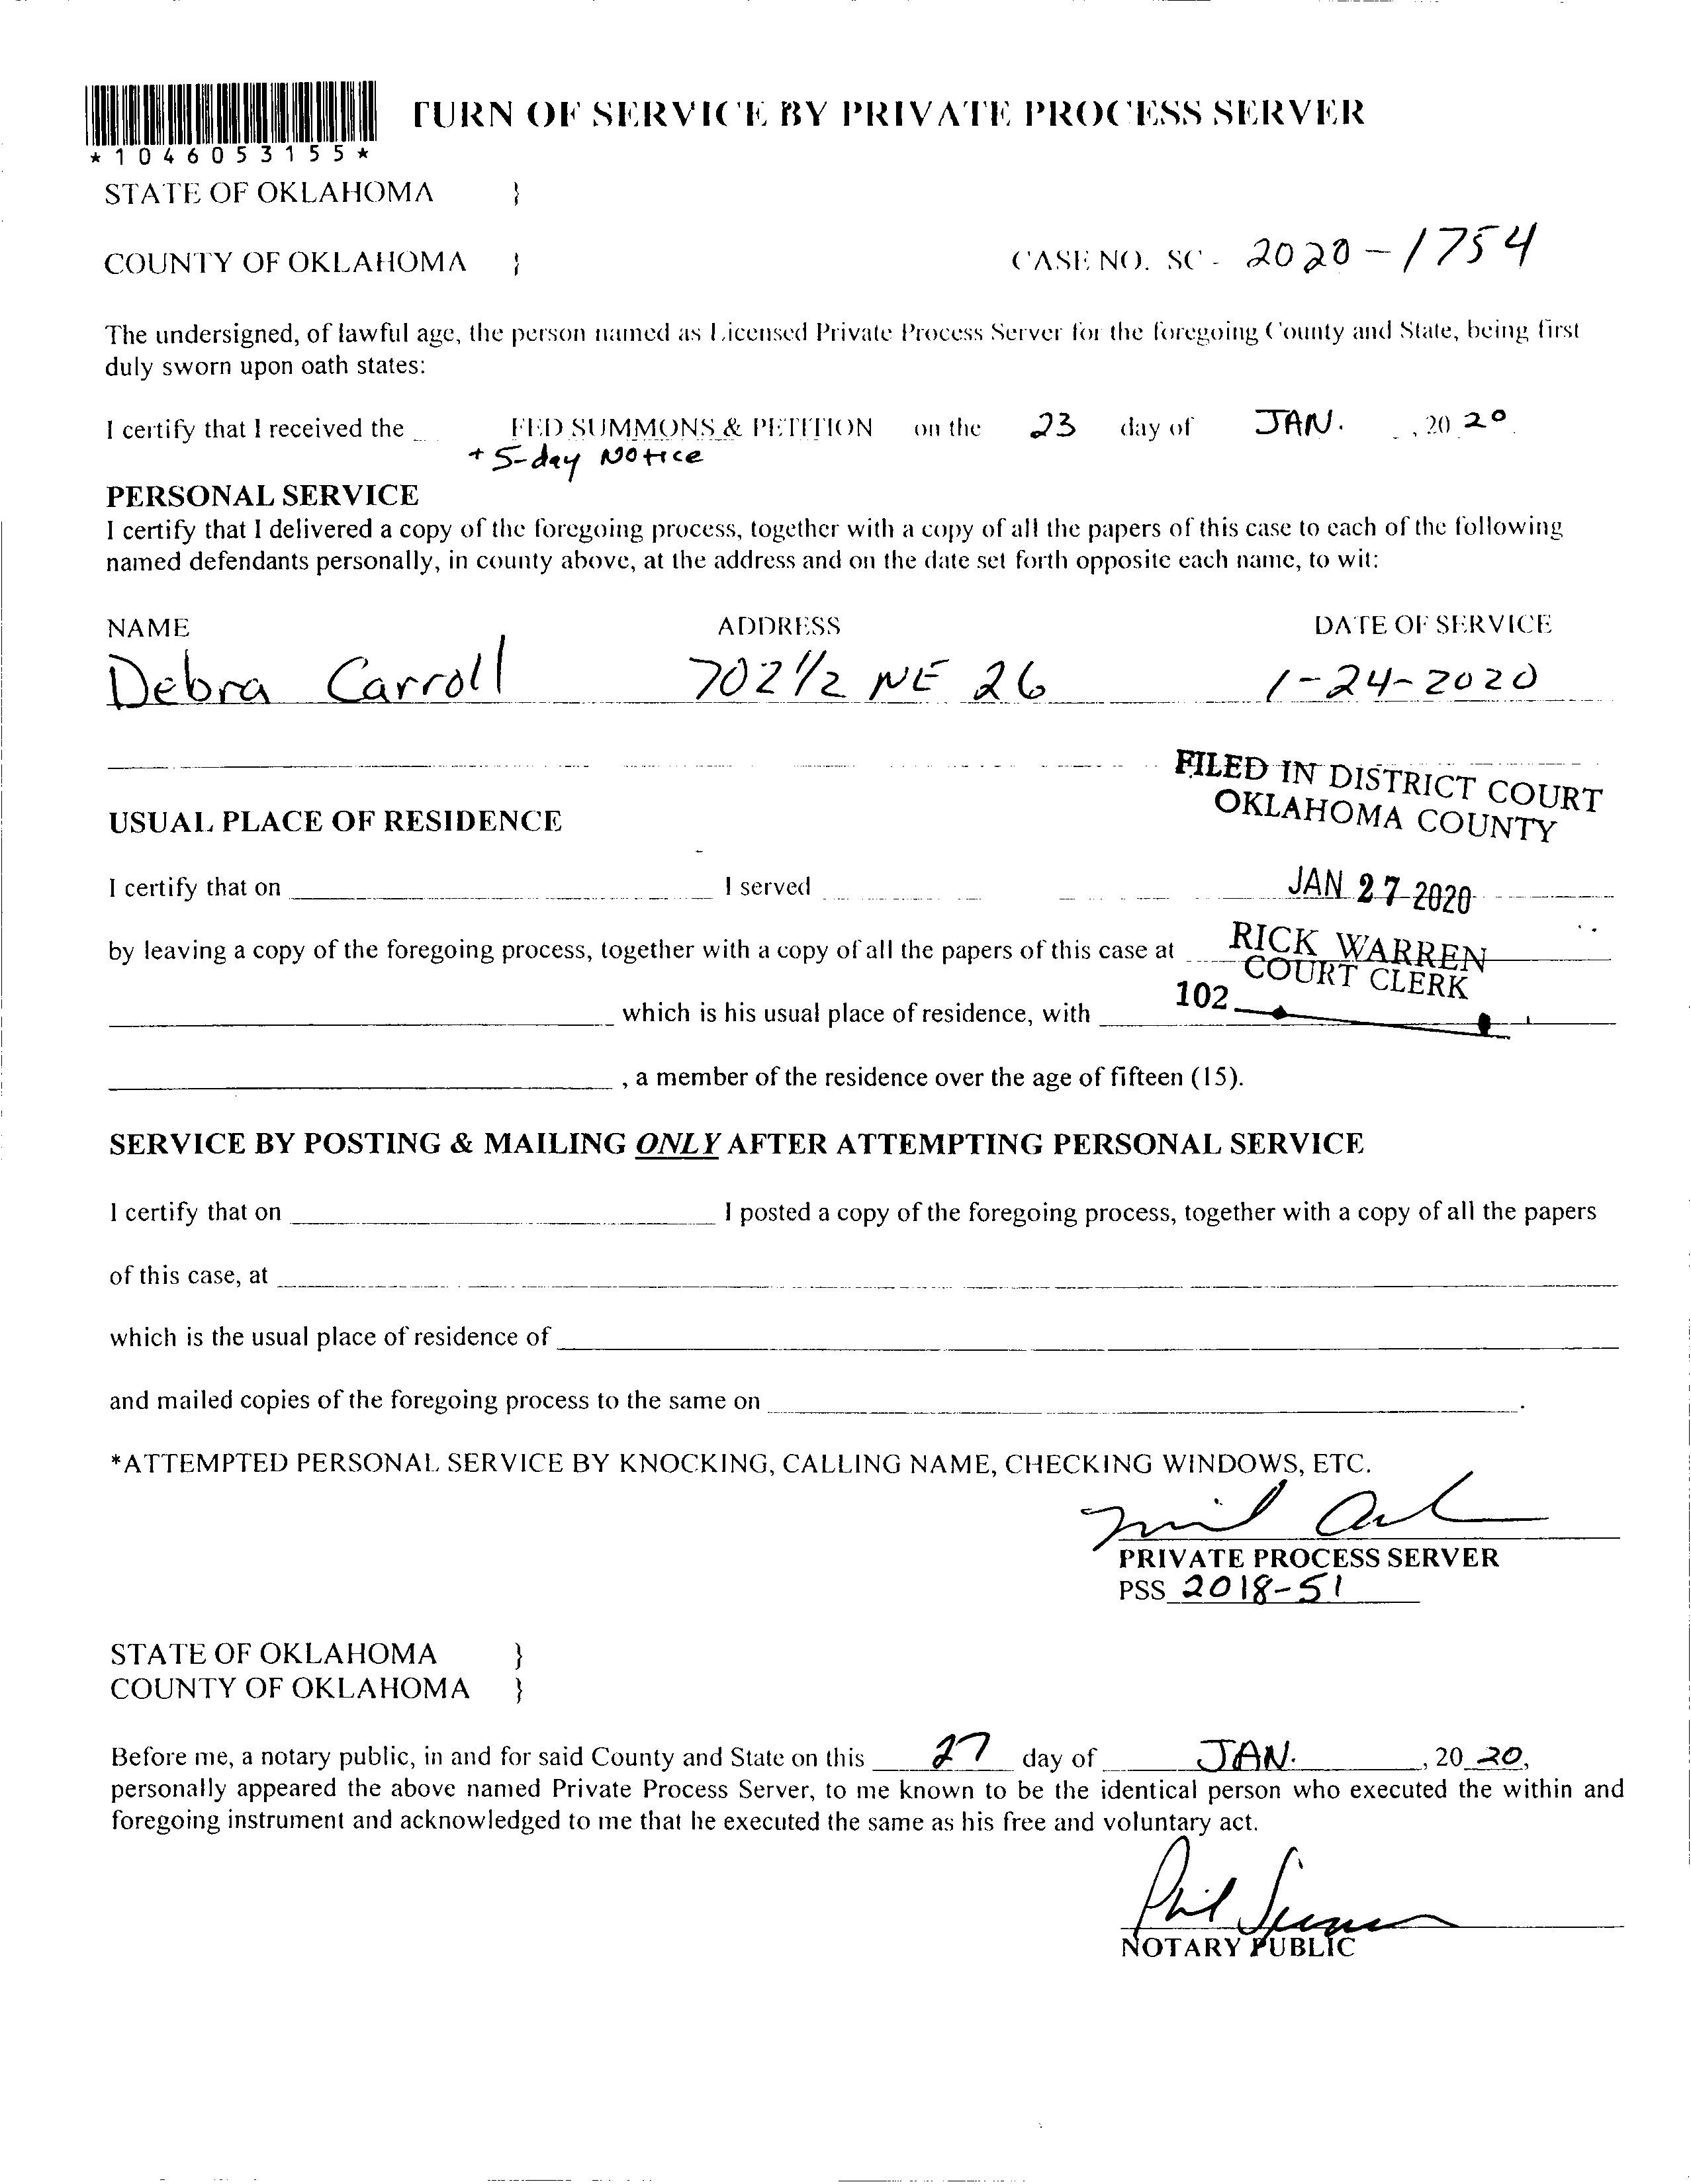 TURN OF SERVICE BY PRIVATE PROCESS SERVER
*1046053155*
STATE OF OKLAHOMA }
COUNTY OF OKLAHOMA } CASE NO. SC - 2020-1754
The undersigned, of lawful age, the person named as Licensed Private Process Server for the foregoing County and State, being first
duly sworn upon oath states:
I certify that I received the FED SUMMONS & PETITION on the 23 day of JAN. , 20 20
+ 5-day Notice
PERSONAL SERVICE
I certify that I delivered a copy of the foregoing process, together with a copy of all the papers of this case to each of the following
named defendants personally, in county above, at the address and on the date set forth opposite each name, to wit:
NAME ADDRESS DATE OF SERVICE
Debra Carroll 702 1/2 NE 26 1-24-2020
FILED IN DISTRICT COURT
OKLAHOMA COUNTY
USUAL PLACE OF RESIDENCE
I certify that on I served
JAN 27 2020
by leaving a copy of the foregoing process, together with a copy of all the papers of this case at
RICK WARREN
COURT CLERK
102
which is his usual place of residence, with
, a member of the residence over the age of fifteen (15).
SERVICE BY POSTING & MAILING ONLY AFTER ATTEMPTING PERSONAL SERVICE
I certify that on I posted a copy of the foregoing process, together with a copy of all the papers
of this case, at
which is the usual place of residence of
and mailed copies of the foregoing process to the same on .
*ATTEMPTED PERSONAL SERVICE BY KNOCKING, CALLING NAME, CHECKING WINDOWS, ETC.
PRIVATE PROCESS SERVER
PSS 2018-51
STATE OF OKLAHOMA }
COUNTY OF OKLAHOMA }
Before me, a notary public, in and for said County and State on this 27 day of JAN. , 20 20,
personally appeared the above named Private Process Server, to me known to be the identical person who executed the within and
foregoing instrument and acknowledged to me that he executed the same as his free and voluntary act.
Phil
NOTARY PUBLIC